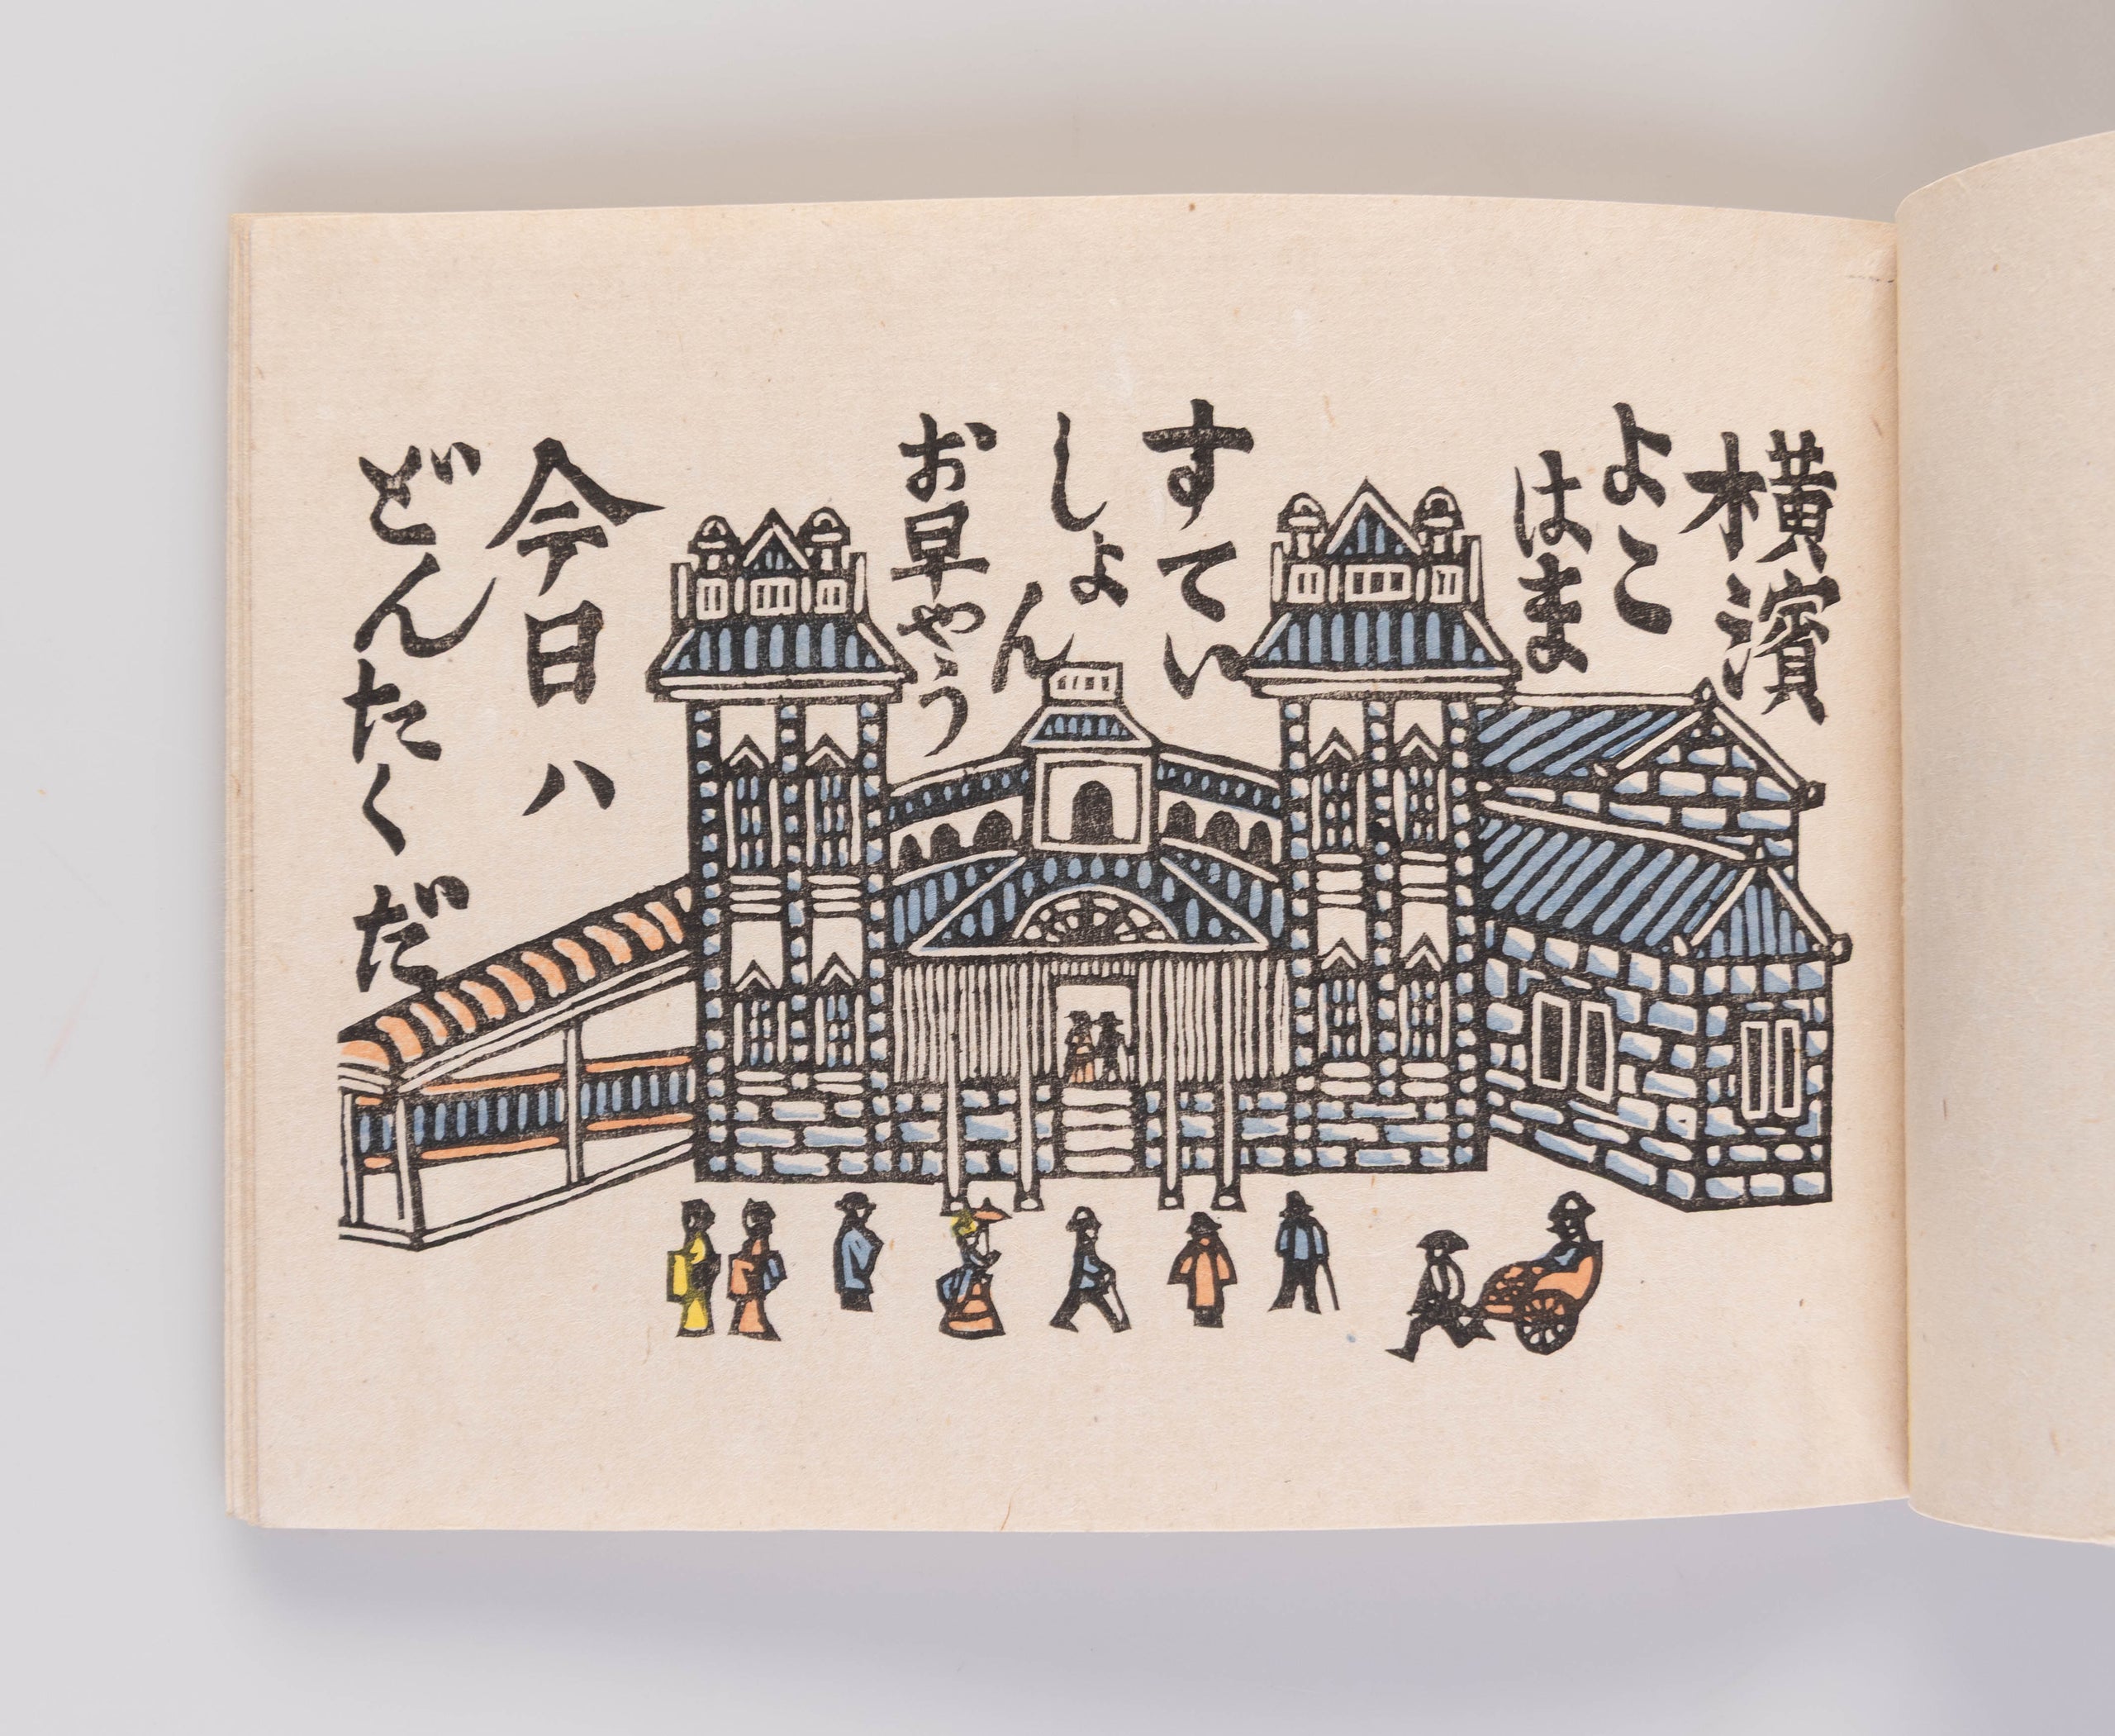 横濱
よこ
はま
すてい
しょん
お早やう
今日ハ
どんたくだ